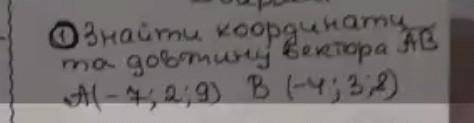 ① Знайти координати
та довтину вектора AB
A(-7; 2; 9) B (-4; 3; 2)